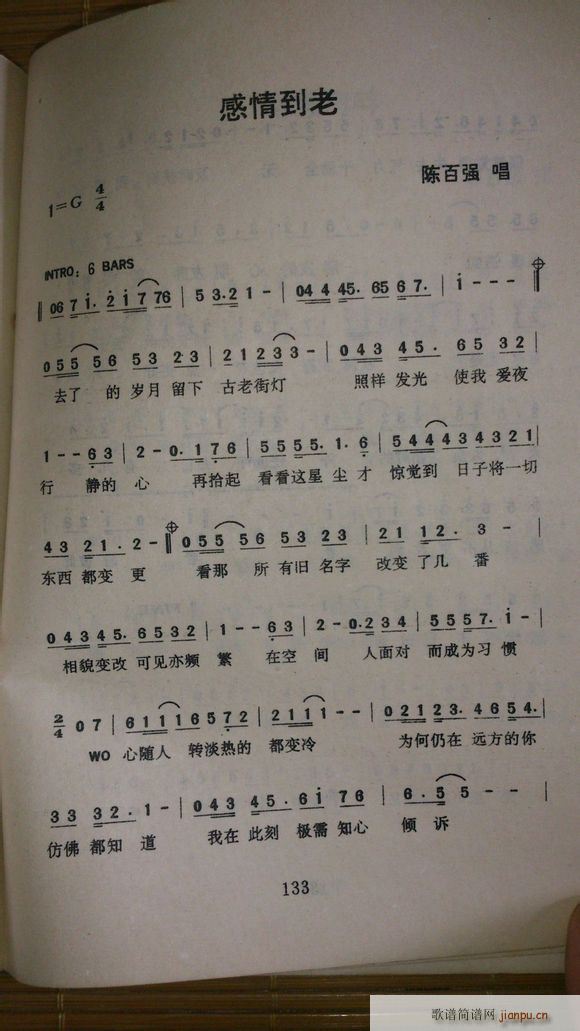 感情到老
陈百强 唱
1=G 4/4
INTRO: 6 BARS
06 7 i. 2 i 7 76 | 5 3.2 1 - | 04 4 45. 65 67. | i - - -
055 56 53 23 | 21233 - | 043 45. 65 32 |
去了 的 岁月 留下 古老街灯 照样 发光 使我 爱夜
1 - - 63 | 2 - 0. 176 | 5555. 1. 6 | 54444 34321
行 静的 心 再拾起 看看这星 尘 才 惊觉到 日子将一切
43 21. 2 - | 055 56 53 23 | 21 12. 3 - |
东西 都变 更 看那 所 有旧 名字 改变 了几 番
0 43 45. 6532 | 1 - - 63 | 2 - 0.234 | 5557. i -
相貌变改 可见亦频 繁 在空 间 人面对 而成为习 惯
2/4 0 7 | 61116572 | 2111 - - | 02123. 4654.
WO 心随人 转淡热的 都变冷 为何仍在 远方的你
33 32. 1 - | 043 45. 6i 76 | 6. 5 5 - - |
仿佛 都知 道 我在 此刻 极需 知心 倾 诉
133
歌谱简谱网
jianpu.cn